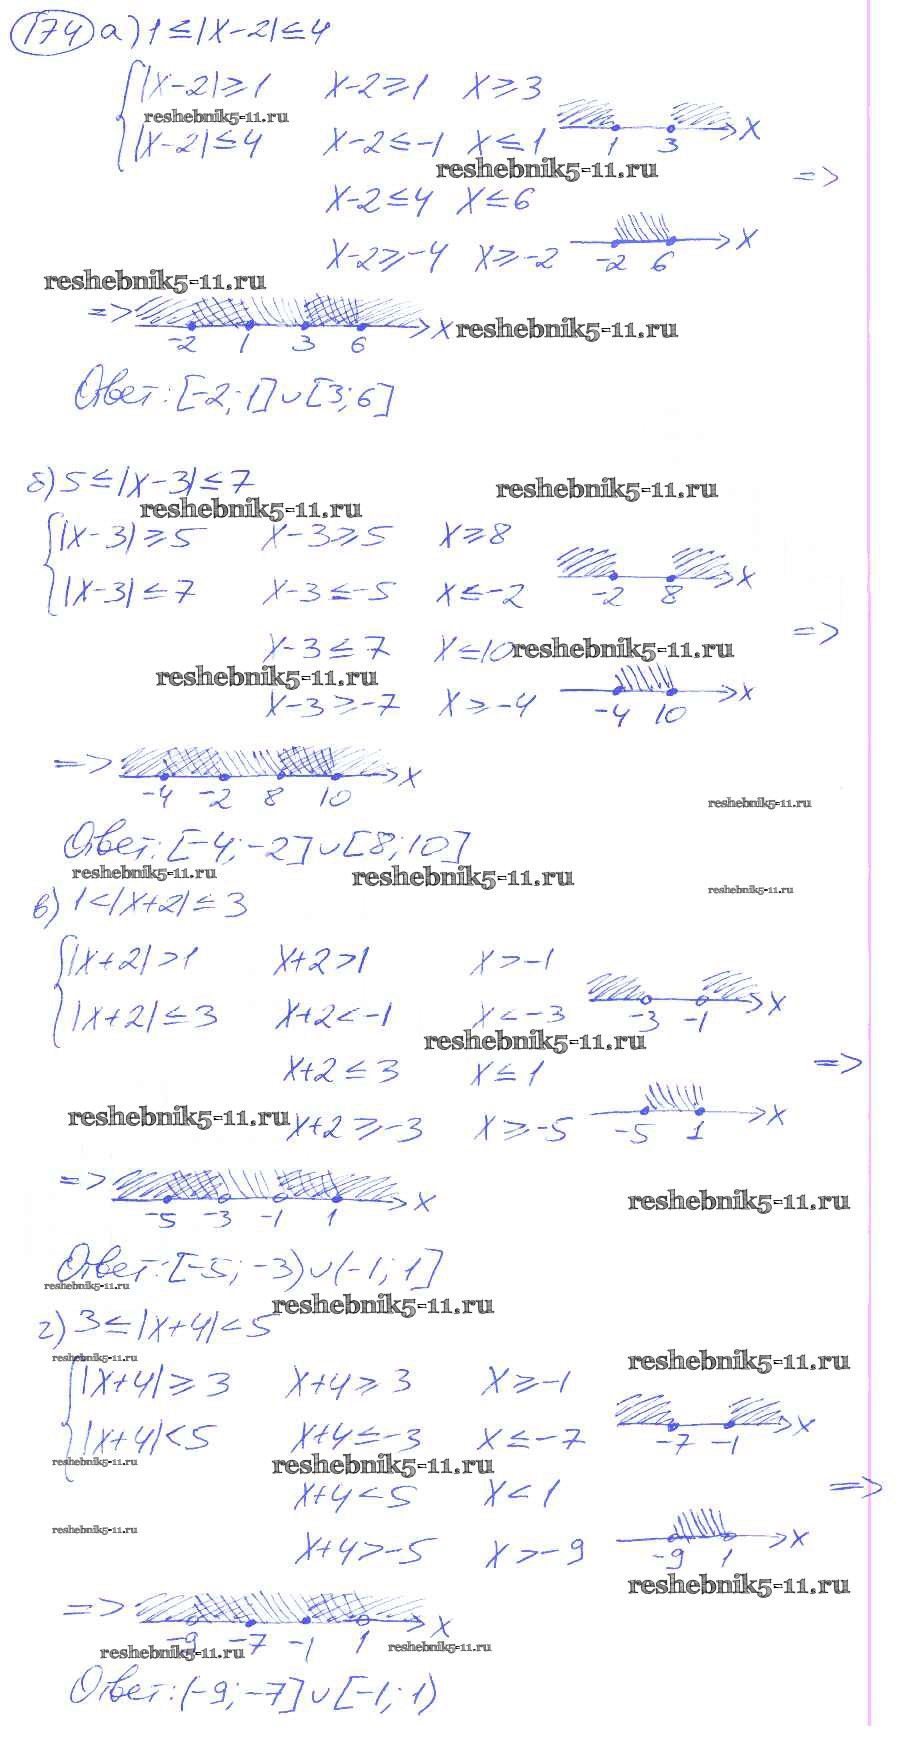 174 а) 1 ≤ |x-2| ≤ 4
|x-2| ≥ 1 x-2 ≥ 1 x ≥ 3
reshebnik5-11.ru
|x-2| ≤ 4 x-2 ≤ -1 x ≤ 1 1 3 x
reshebnik5-11.ru
=>
x-2 ≤ 4 x ≤ 6
x-2 ≥ -4 x ≥ -2 -2 6 x
reshebnik5-11.ru
=> -2 1 3 6 x
reshebnik5-11.ru
Ответ: [-2; 1] ∪ [3; 6]
б) 5 ≤ |x-3| ≤ 7
reshebnik5-11.ru
reshebnik5-11.ru
|x-3| ≥ 5 x-3 ≥ 5 x ≥ 8
|x-3| ≤ 7 x-3 ≤ -5 x ≤ -2 -2 8 x
=>
x-3 ≤ 7 x ≤ 10
reshebnik5-11.ru
reshebnik5-11.ru
x-3 ≥ -7 x ≥ -4 -4 10 x
=> -4 -2 8 10 x
reshebnik5-11.ru
Ответ: [-4; -2] ∪ [8; 10]
reshebnik5-11.ru
reshebnik5-11.ru
reshebnik5-11.ru
в) 1 < |x+2| ≤ 3
|x+2| > 1 x+2 > 1 x > -1
|x+2| ≤ 3 x+2 < -1 x < -3 -3 -1 x
reshebnik5-11.ru
=>
x+2 ≤ 3 x ≤ 1
reshebnik5-11.ru
x+2 ≥ -3 x ≥ -5 -5 1 x
=> -5 -3 -1 1 x
reshebnik5-11.ru
Ответ: [-5; -3) ∪ (-1; 1]
reshebnik5-11.ru
reshebnik5-11.ru
г) 3 ≤ |x+4| < 5
reshebnik5-11.ru
reshebnik5-11.ru
|x+4| ≥ 3 x+4 ≥ 3 x ≥ -1
|x+4| < 5 x+4 ≤ -3 x ≤ -7 -7 -1 x
reshebnik5-11.ru
reshebnik5-11.ru
=>
x+4 < 5 x < 1
reshebnik5-11.ru
x+4 > -5 x > -9 -9 1 x
reshebnik5-11.ru
=> -9 -7 -1 1 x
reshebnik5-11.ru
reshebnik5-11.ru
Ответ: (-9; -7] ∪ [-1; 1)